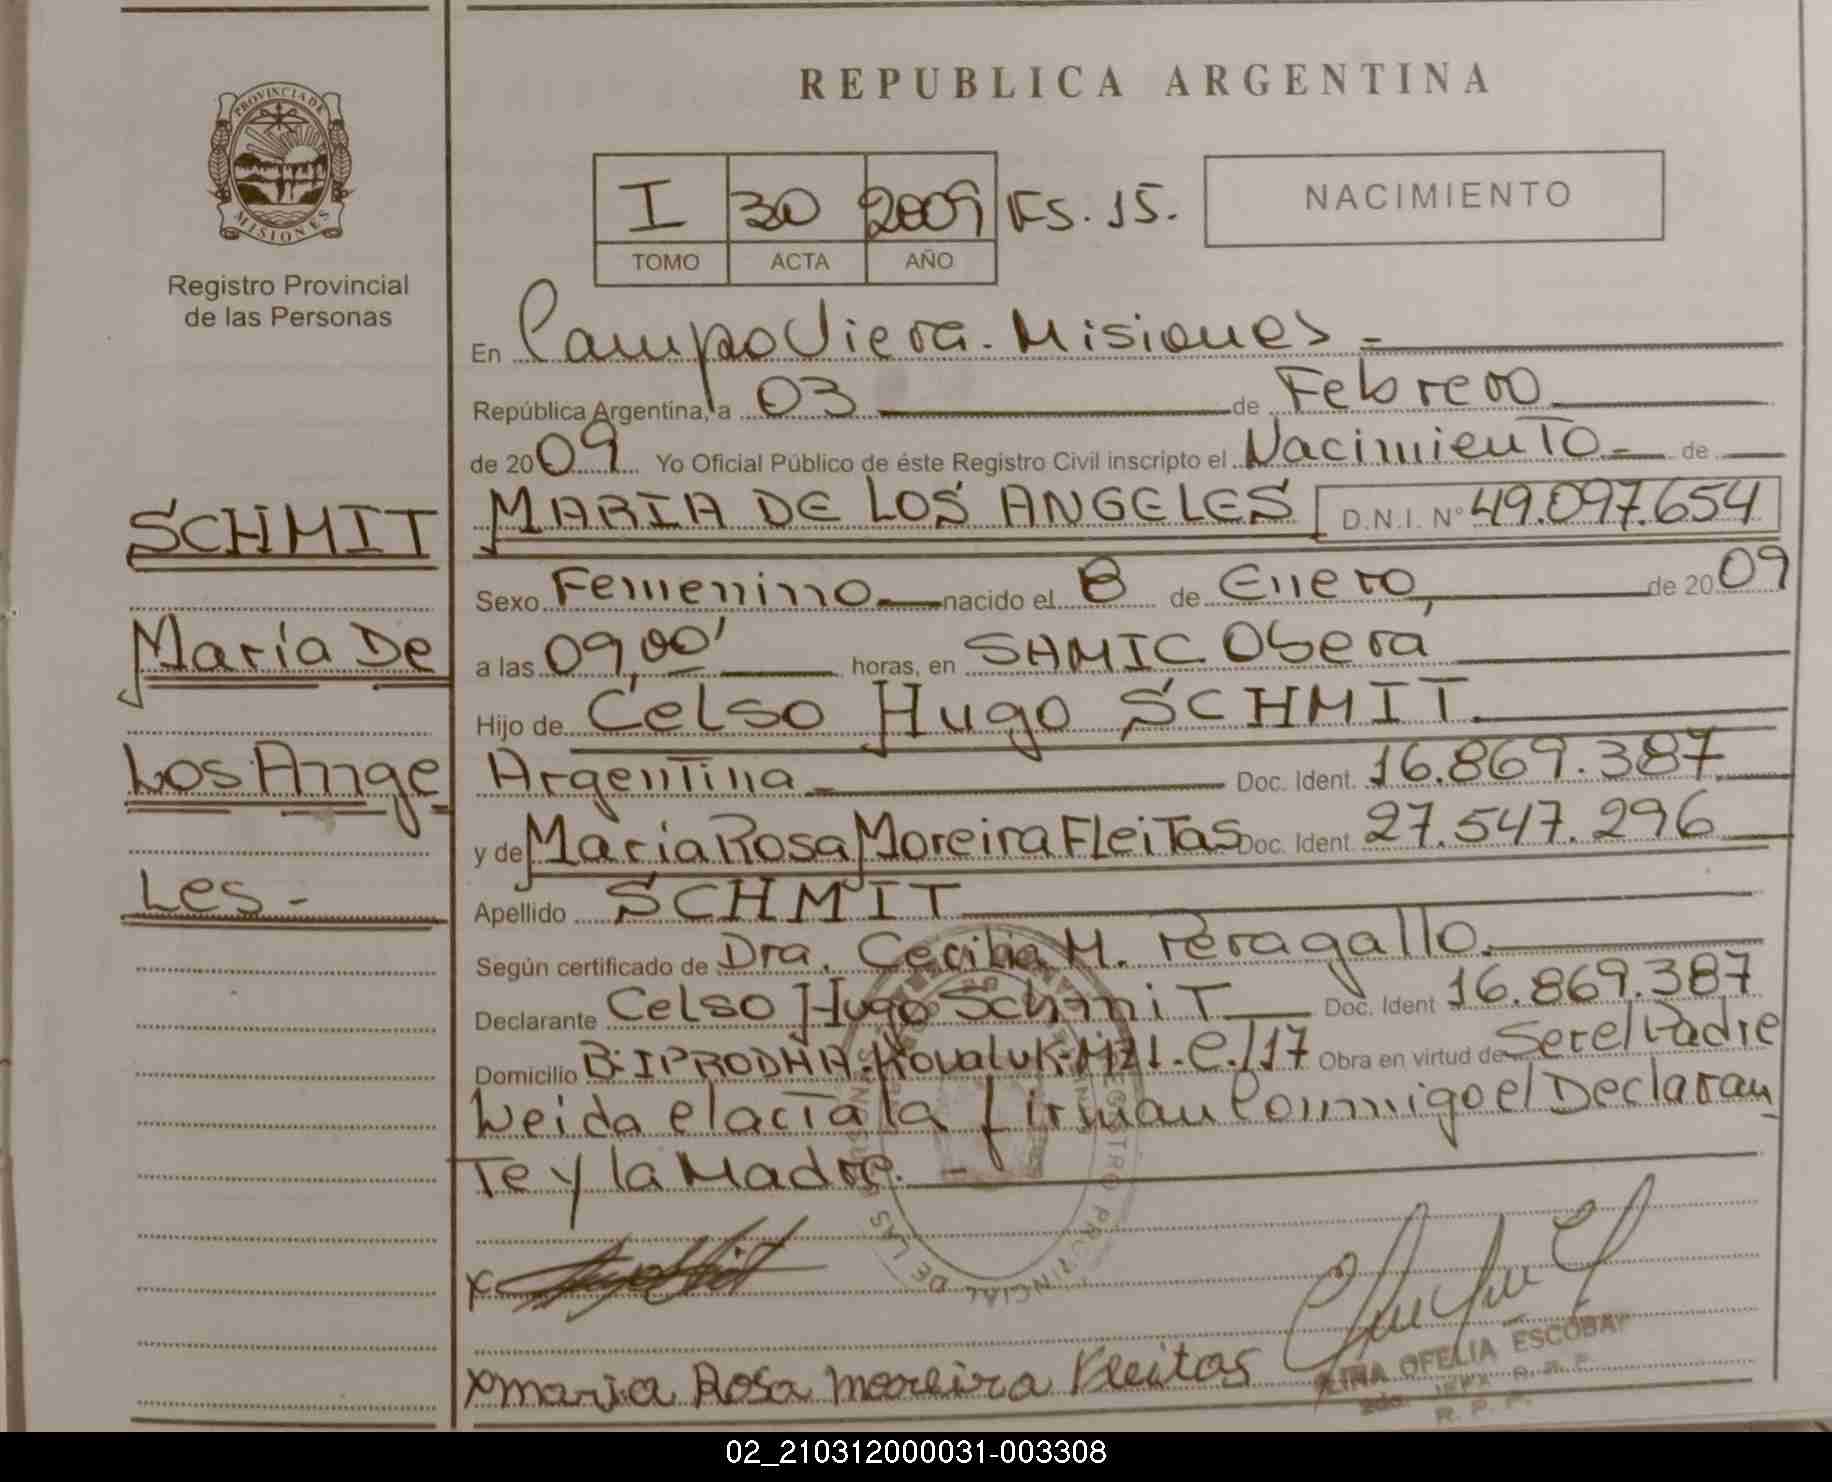 REPUBLICA ARGENTINA
PROVINCIA DE
MISIONES
Registro Provincial
de las Personas
I 30 2009 FS. 15.
TOMO ACTA AÑO
NACIMIENTO
SCHMIT
María De
Los Ange
Les -
En Campo Viera. Misiones -
República Argentina, a 03 de Febrero
de 2009 Yo Oficial Público de éste Registro Civil inscripto el Nacimiento - de
MARIA DE LOS ANGELES D.N.I. N° 49.097.654
Sexo Femenino nacido el 8 de Enero, de 2009
a las 09,00' horas, en SAMIC Oberá
Hijo de Celso Hugo SCHMIT.
Argentina - Doc. Ident. 16.869.387
y de María Rosa Moreira Fleitas Doc. Ident. 27.547.296
Apellido SCHMIT
Según certificado de Dra. Cecilia M. Peragallo.
Declarante Celso Hugo Schmit Doc. Ident 16.869.387
Domicilio B: IPRODHA. Kovaluk. MZ1. C./17 Obra en virtud de Ser el Padre
Leida el acta la firman Conmigo el Declaran
Te y la Madre. -
x
x maria Rosa moreira Fleitas
OFELIA ESCOBAR
R. P. P.
02_210312000031-003308